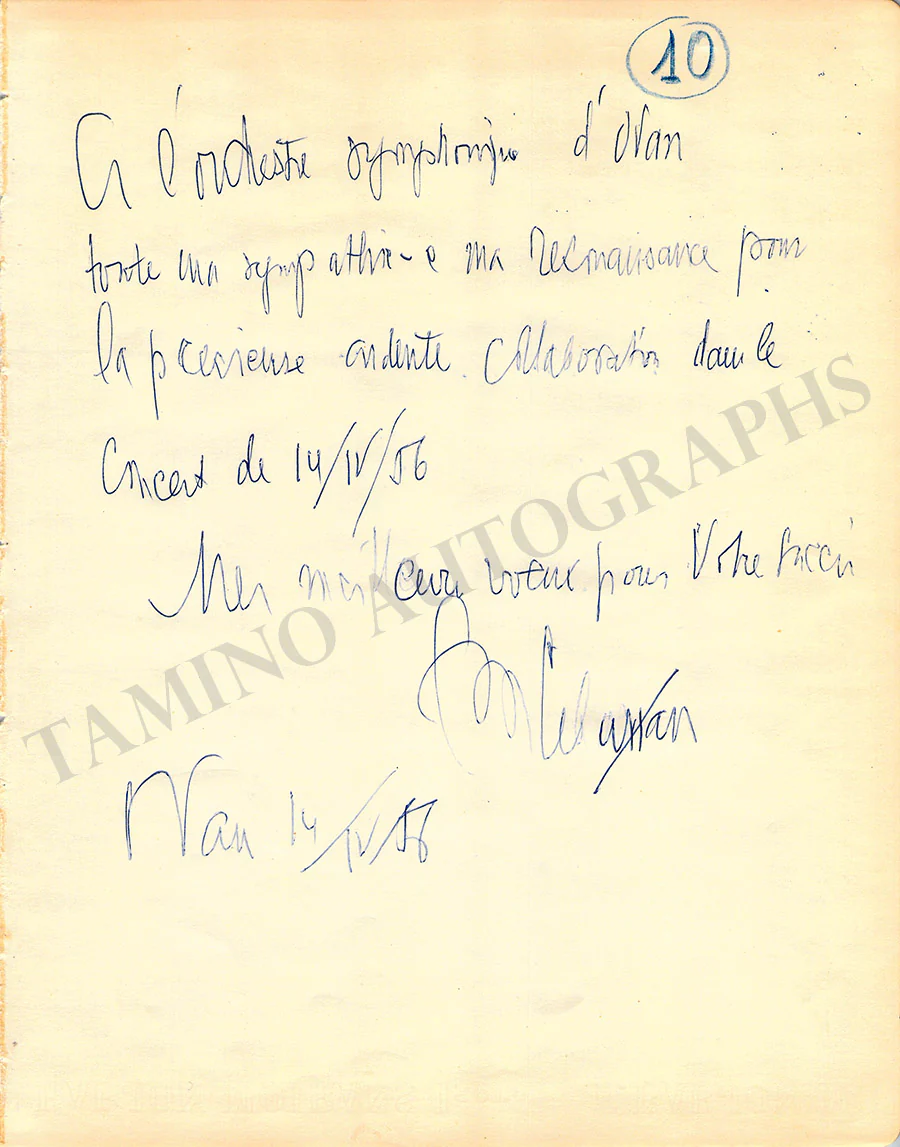 10
A l'orchestre symphonique d'Oran
toute ma sympathie e ma reconnaissance pour
la precieuse ardente collaboration dans le
Concert de 14/IV/56
Mes meilleurs voeux pour Votre succès
TAMINO AUTOGRAPHS
Oran 14/IV/56